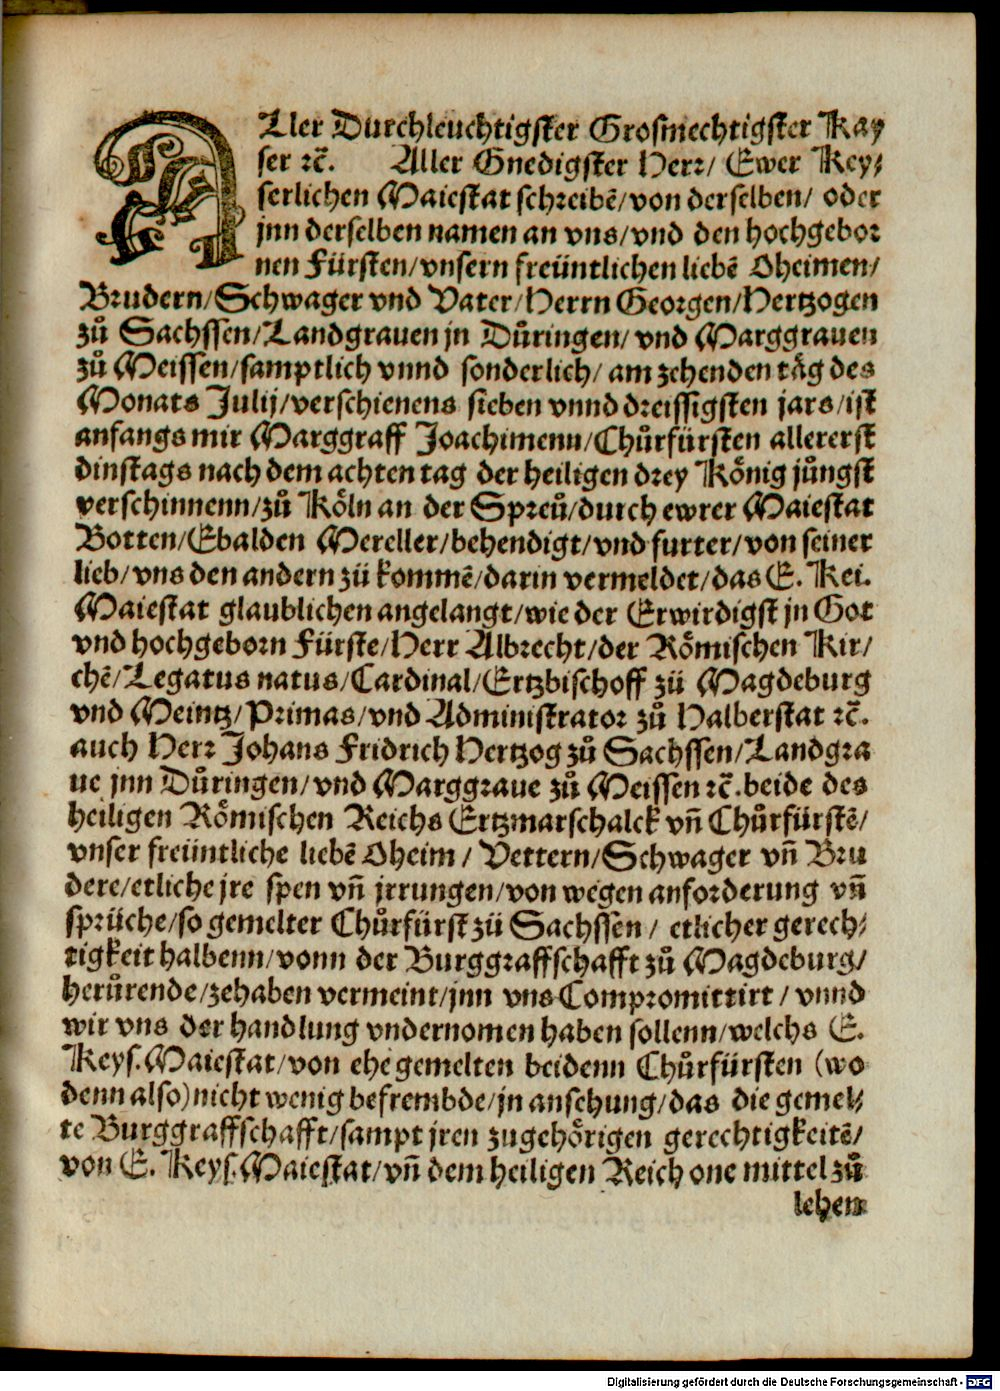 ALler Durchleuchtigster Grosmechtigster Kay
ser ꝛc̃. Aller Gnedigster Herꝛ/ Ewer Key⸗
serlichen Maiestat schreibẽ/von derselben/ oder
jnn derselben namen an vns/vnd den hochgeboꝛ
nen Fürsten/vnsern freüntlichen liebẽ Oheimen/
Brudern/Schwager vnd Vater/Herrn Georgen/Hertzogen
zů Sachssen/Landgrauen jn Důringen/ vnd Marggrauen
zů Meissen/samptlich vnnd sonderlich/ am zehenden tåg des
Monats Julij/verschienens sieben vnnd dreissigsten jars/ist
anfangs mir Marggraff Joachimenn/Chůrfürsten allererst
dinstags nach dem achten tag der heiligen drey König jůngst
verschinnenn/zů Köln an der Spreů/durch ewrer Maiestat
Botten/Ebalden Mereller/behendigt/vnd furter/von seiner
lieb/vns den andern zü kommẽ/darin vermeldet/das E. Kei.
Maiestat glaublichen angelangt/wie der Erwirdigst jn Got
vnd hochgeboꝛn Fürste/Herr Albꝛecht/der Römischen Kir/
chẽ/Legatus natus/Cardinal/Ertzbischoff zü Magdeburg
vnd Meintz/Pꝛimas/vnd Administratoꝛ zů Halberstat ꝛc̃.
auch Herꝛ Johans Fridrich Hertzog zů Sachssen/Landgra
ue jnn Důringen/vnd Marggraue zů Meissen ꝛc̃.beide des
heiligen Römischen Reichs Ertzmarschalck vñ Chůrfürstẽ/
vnser freüntliche liebẽ Oheim / Vettern/Schwager vñ Bru
dere/etliche jre spen vñ jrrungen/von wegen anforderung vñ
sprüche/so gemelter Chůrfürst zü Sachssen / etlicher gerech⸗
tigkeit halbenn/vonn der Burggraffschafft zů Magdeburg/
herůrende/zehaben vermeint/jnn vns Compꝛomittirt / vnnd
wir vns der handlung vndernomen haben sollenn/welchs E.
Keys. Maiestat/von ehe gemelten beidenn Chůrfürsten (wo
denn also)nicht wenig befrembde/jn ansehung/das die gemel⸗
te Burggraffschafft/sampt jren zugehörigen gerechtigkeitẽ/
von E. Keys. Maiestat/vñ dem heiligen Reich one mittel zů
lehen
Digitalisierung gefördert durch die Deutsche Forschungsgemeinschaft - DFG